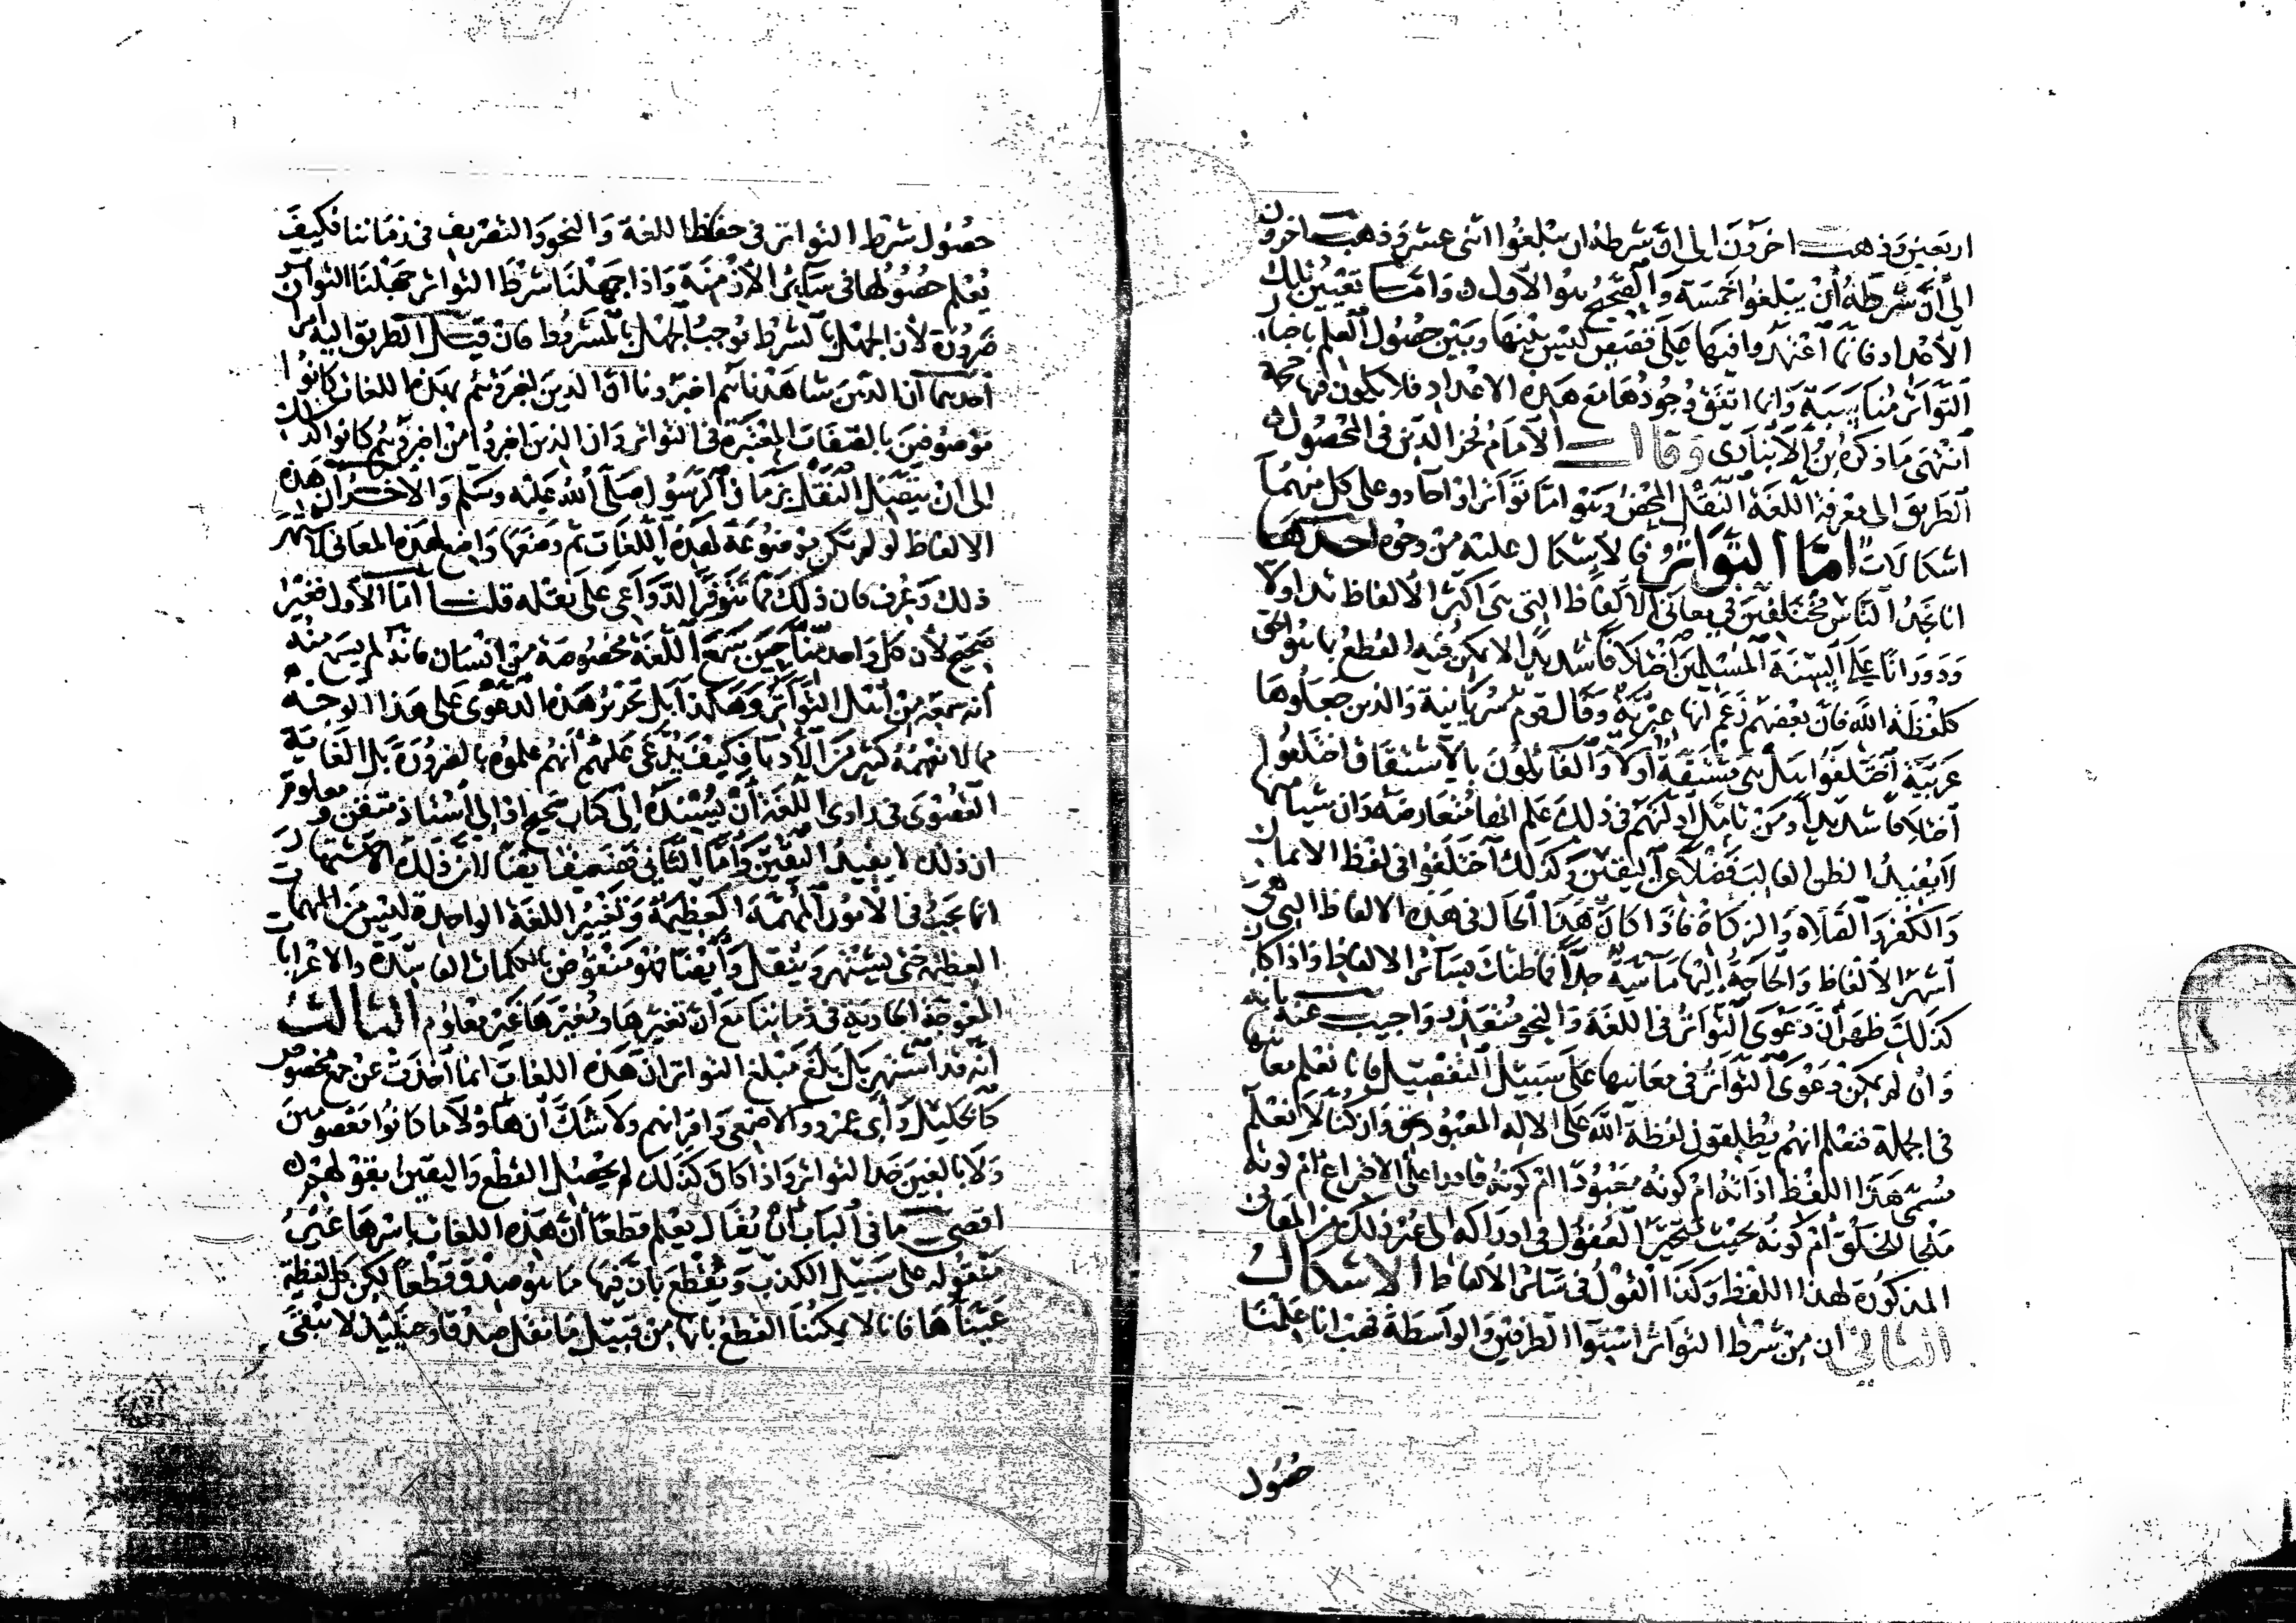 اربعين وذهب اخرون الى ان شرطه ان يبلغوا اثنى عشر وذهب اخرون
الى أن شرطه أن يبلغوا خمسة والصحيح هو الاول وامّا تعيين تلك
الأعداد فانما اعتمدوا فيها على قصص ليس بينها وبين حصول العلم باخبار
التواتر مناسبة وانما اتفق وجودها مع هذه الاعداد فلا يكون فيها حجة
انتهى ما ذكره بن الانبارى وقال الامام فخر الدين فى المحصول
الطريق الى معرفة اللغة النقل المحض وهو اما تواتر او احاد وعلى كل منهما
اشكالات امّا التواتر فالاشكال عليه من وجوه احدها
انا نجد الناس مختلفين فى معانى الالفاظ التى هى أكثر الألفاظ تداولا
ودورانا على السنة المسلمين اختلافا شديدا لا يمكن فيه القطع بما هو الحق
كلفظة الله فان بعضهم زعم أنها عبرية وقال قوم سريانية والذين جعلوها
عربية اختلفوا هل هى مشتقة أولا والقائلون بالاشتقاق اختلفوا
اختلافا شديدا ومن تامل ادلتهم فى ذلك علم انها متعارضة وان شيا منها
لا يفيد الظن الغالب فضلا عن اليقين وكذلك اختلفوا فى لفظ الايمان
والكفر والصلاه والزكاة فاذا كان هذا الحال فى هذه الالفاظ التى هى
أشهر الألفاظ والحاجة إليها ماسة جدا فما ظنك بسائر الالفاظ واذا كان
كذلك ظهر أن دعوى التواتر فى اللغة والنحو متعذر واجيب عنه بانه
وان لم يمكن دعوى التواتر فى معانيها على سبيل التفصيل فانا نعلم معانيها
فى الجملة فنعلم انهم يطلقون لفظة الله على الاله المعبود بحق وان كنا لا نعلم
مسمى هذا اللفظ اذاته ام كونه معبودا ام كونه قادرا على الاختراع ام كونه
ملجا للخلق ام كونه بحيث تتحير العقول فى ادراكه الى غير ذلك من المعانى
المذكورة لهذا اللفظ وكذا القول فى سائر الألفاظ الاشكال
الثانى ان من شرط التواتر استوا الطرفين والواسطة فهب انا علمنا
حصول
حصول شرط التواتر فى حفاظ اللغة والنحو والتصريف فى زماننا فكيف
نعلم حصولها فى سائر الأزمنة واذا جهلنا شرط التواتر جهلنا التواتر
ضرورة لأن الجهل بالشرط يوجب الجهل بالمشروط فان قيل الطريق اليه امران
أحدهما أن الذين شاهدناهم اخبرونا ان الذين اخبروهم بهذه اللغات كانوا
موصوفين بالصفات المعتبرة فى التواتر وان الذين اخبروا من اخبروهم كانوا كذلك
الى أن يتصل النقل بزمان الرسول صلى الله عليه وسلم والاخر ان هذه
الالفاظ لو لم تكن موضوعة لهذه اللغات ثم وضعها واضع لهذه المعانى لاشتهر
ذلك وعرف فان ذلك مما تتوفر الدواعى على نقله قلنا أمّا الأول فغير
صحيح لأن كل واحد منا حين سمع اللغة مخصوصة من انسان فانه لم يسمع منه
أنه سمعه من أهل التواتر وهكذا بل تحرير هذه الدعوى على هذا الوجه
مما لا نفهمه كثير من الأدبا فكيف يدعى عليهم أنهم علموه بالضرورة بل الغاية
القصوى فى راوى اللغة أن يسنده إلى كتاب صحيح او الى استاذ متقن ومعلوم
ان ذلك لا يفيد اليقين وأما الثانى فضعيف ايضا لان ذلك الاشتهار
انما يجب فى الأمور المهمة العظيمة وتغيير اللغة الواحدة ليس من المهمات
العظيمة حتى يشتهر وينقل وأيضا فهو منقوض بالكلمات الفاسدة والاعرابات
المعوجة الجارية فى زماننا مع أن تغيرها ومغيرها غير معلوم الثالث
أنه قد اشتهر بل بلغ مبلغ التواتر ان هذه اللغات انما أخذت عن جمع مخصوص
كالخليل وأبى عمرو والاصمعى واقرانهم ولا شك أن هاولاء ما كانوا معصومين
ولا بالغين حد التواتر واذا كان كذلك لم يحصل القطع واليقين بقولهم
اقصى ما فى الباب أن يقال يعلم قطعا أن هذه اللغات باسرها غير
منقولة على سبيل الكذب ونقطع بان فيها ما هو صدق قطعا لكن كل لفظة
عيناها فانا لا يمكننا القطع بانها من قبيل ما نقل صدقا وحينئذ لا يبقى